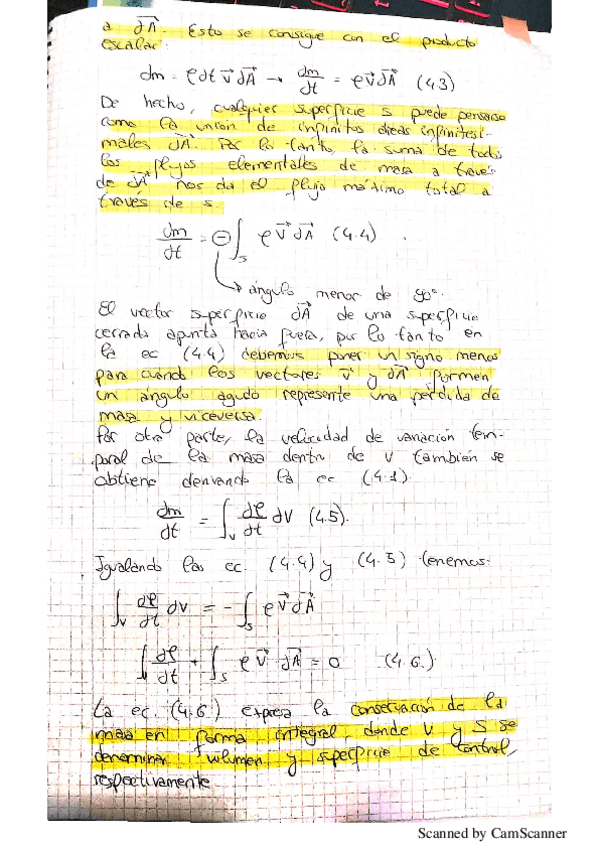 a dA⃗. Esto se consigue con el producto
escalar:
dm = ρ dt v⃗ dA⃗ → dm/dt = ρ v⃗ dA⃗ (4.3)
De hecho, cualquier superficie s puede pensarse
como la unión de infinitas áreas infinitesi-
males dA⃗. Por lo tanto, la suma de todos
los flujos elementales de masa a través
de dA⃗ nos da el flujo máximo total a
través de s.
dm/dt = ⊖ ∫s ρ v⃗ dA⃗ (4.4)
→ ángulo menor de 90º.
El vector superficie dA⃗ de una superficie
cerrada apunta hacia fuera, por lo tanto en
la ec (4.4) debemos poner un signo menos
para cuando los vectores v⃗ y dA⃗ formen
un ángulo agudo represente una pérdida de
masa y viceversa.
Por otra parte, la velocidad de variación tem-
poral de la masa dentro de V también se
obtiene derivando la ec (4.1)
dm/dt = ∫v dρ/dt dV (4.5).
Igualando las ec. (4.4) y (4.5) tenemos:
∫v dρ/dt dv = - ∫s ρ v⃗ dA⃗
∫ dρ/dt + ∫s ρ v⃗ dA⃗ = 0 (4.6.)
La ec. (4.6.) expresa la conservación de la
masa en forma integral, donde V y S se
denominan volumen y superficie de control,
respectivamente
Scanned by CamScanner